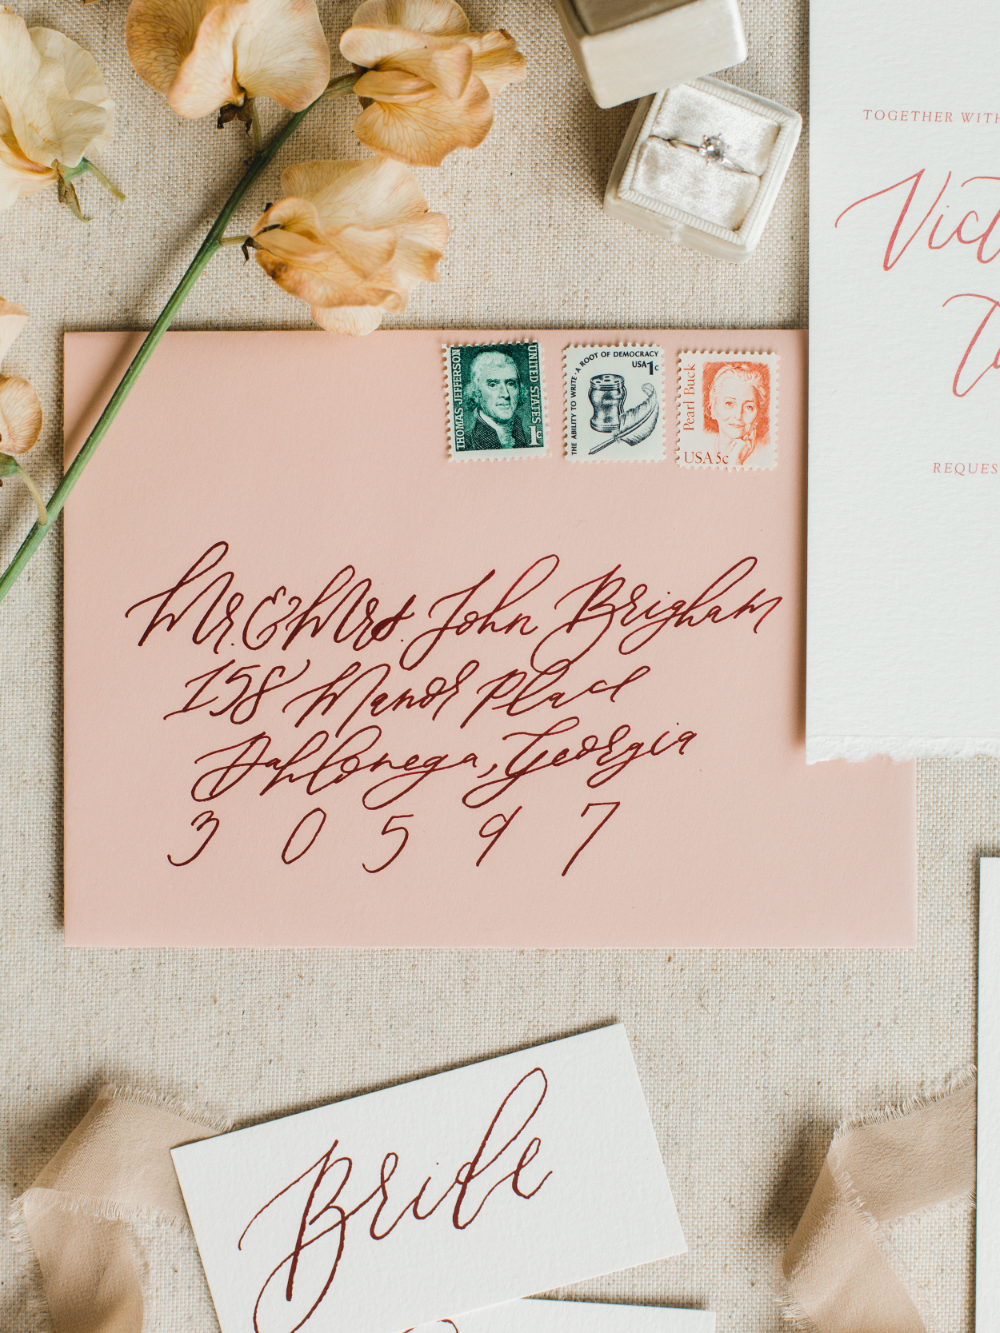 THOMAS JEFFERSON
UNITED STATES
1c
THE ABILITY TO WRITE · A ROOT OF DEMOCRACY
USA 1c
Pearl Buck
USA 5c
TOGETHER WITH
Mr. & Mrs. John Brigham
158 Manor Place
Dahlonega, Georgia
30597
Bride